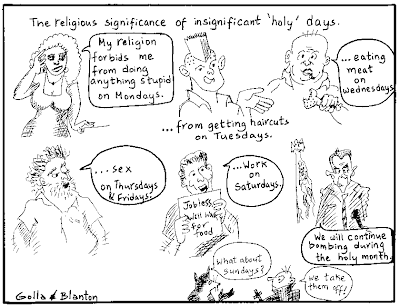 The religious significance of insignificant 'holy' days.
My religion
forbids me
from doing
anything stupid
on Mondays.
...from getting haircuts
on Tuesdays.
...eating
meat on
wednesdays
...sex
on Thursdays
& Fridays.
...Work
on
Saturdays.
Jobless
Will
for
food
We will continue
bombing during
the holy month.
What about
Sundays?
We take
them off!
Golla & Blanton